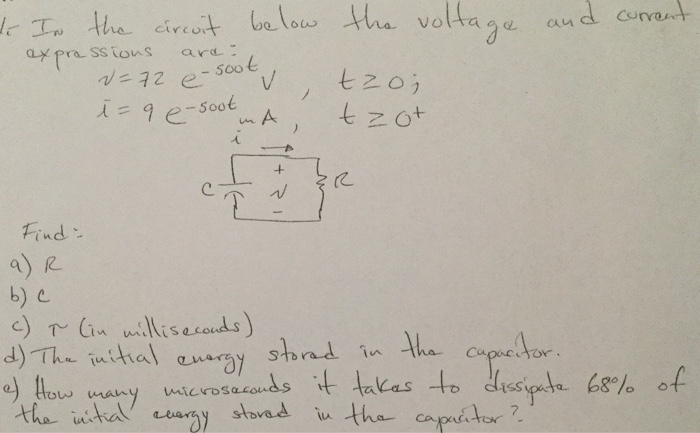 1- In the circuit below the voltage and current
expressions are:
v = 72 e^-500t V , t ≥ 0;
i = 9 e^-500t mA , t ≥ 0+
i
+
C v R
-
Find:
a) R
b) C
c) τ (in milliseconds)
d) The initial energy stored in the capacitor.
e) How many microseconds it takes to dissipate 68% of
the initial energy stored in the capacitor?